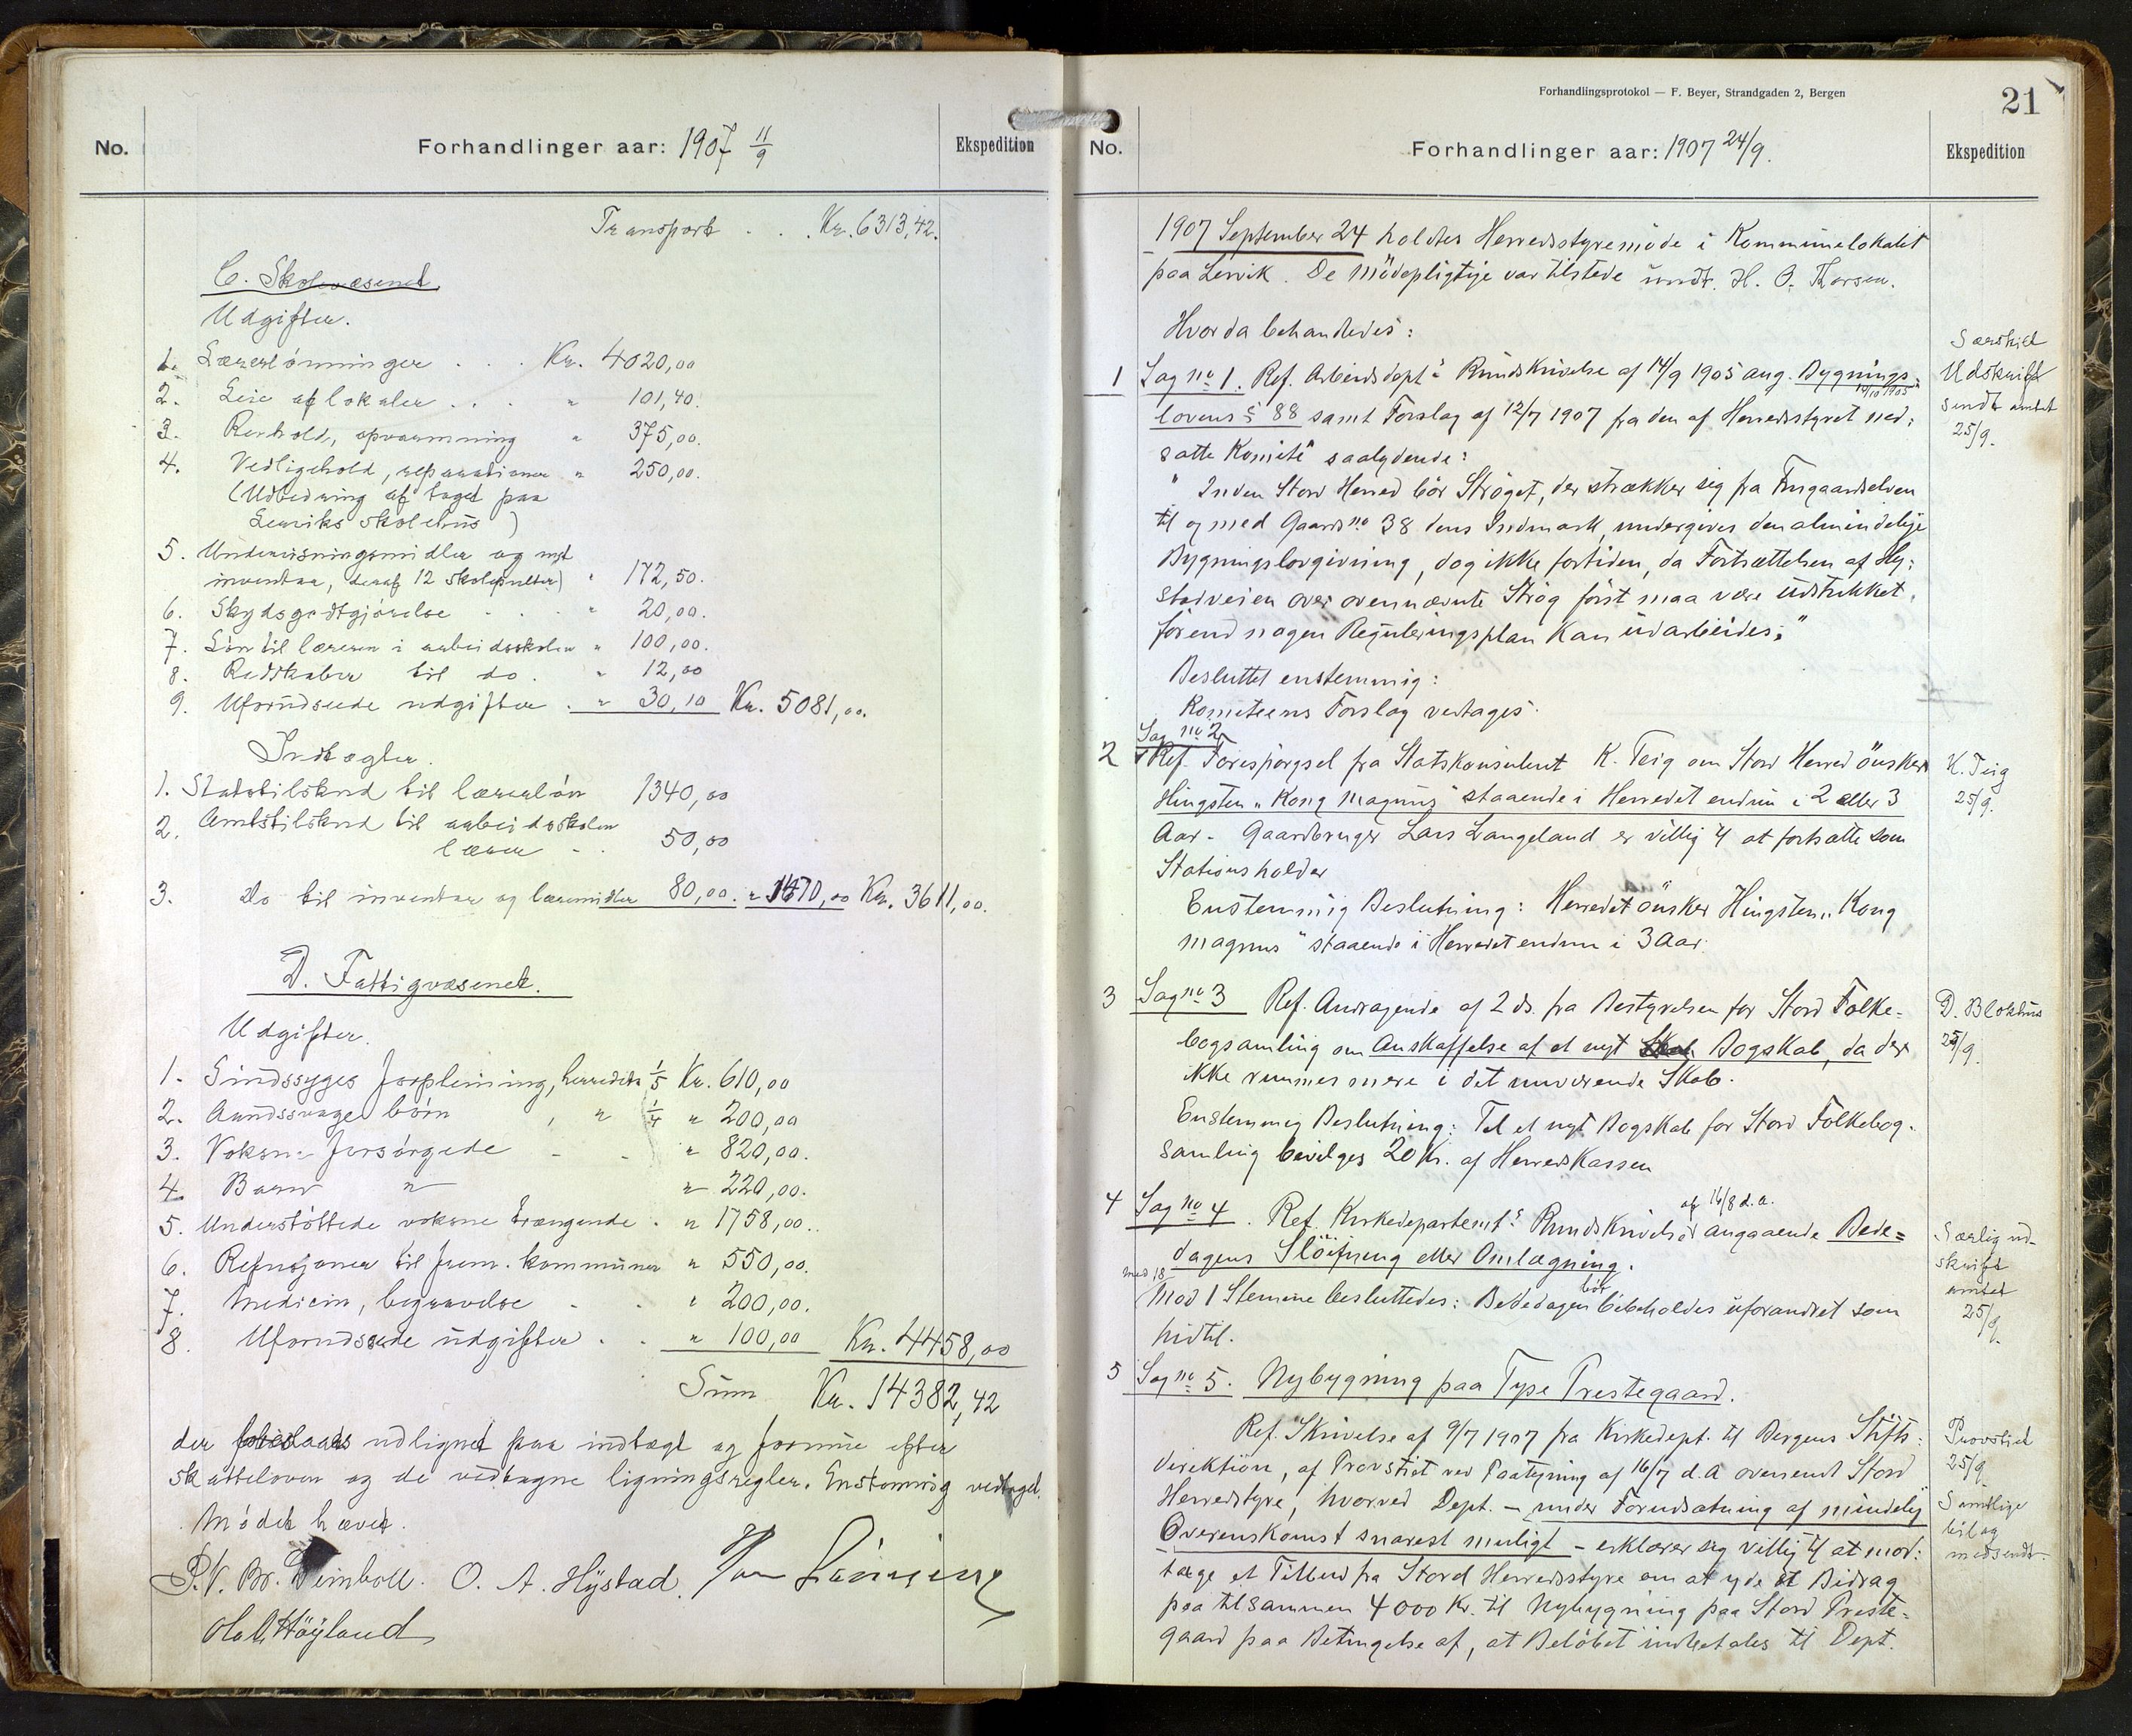 No.
Forhandlinger aar: 1907 11/9
Ekspedition
Transport . . . Kr. 6313,42.
C. Skolevæsenet.
Udgifter.
1. Lærerlönninger . . . Kr. 4020,00
2. Leie af lokaler . . . " 101,40.
3. Renhold, opvarmning " 375,00.
4. Vedligehold, reparationer " 250,00.
(Udbedring af taget paa
Lerviks skolehus)
5. Undervisningsmidler og nyt
inventar, deraf 12 skolepulter) " 172,50.
6. Skydsgodtgjörelse . . . " 20,00.
7. Løn til læreren i arbeidsskolen " 100,00.
8. Redskaber til do. " 12,00
9. Uforudseede udgifter . " 30,10 Kr. 5081,00.
Indtægter.
1. Statstilskud til lærerløn 1340,00
2. Amtstilskud til arbeidsskolen
lærer - . 50,00
3. Do til inventar og læremidler 80,00. " 1470,00 Kr. 3611,00.
D. Fattigvæsenet.
Udgifter.
1. Sindssyges forpleining, herredets 1/5 Kr. 610,00
2. Aandssvage börn , " 1/4 " 200,00
3. Voksne forsörgede - . " 820,00.
4. Barn " " 220,00.
5. Understöttede voksne trængende . " 1758,00.
6. Refusjoner til frem. kommuner " 550,00.
7. Medicin, begravelse . . " 200,00.
8. Uforudseede udgifter . . " 100,00 Kr. 4458,00
Sum Kr. 14382,42
der foreslaaes udlignet paa indtægt og formue efter
skatteloven og de vedtagne ligningsregler. Enstemmig vedtaget.
Mödet hævet.
P. V. Br. O. A. Hystad.
Ola O. Höyland
Forhandlingsprotokol — F. Beyer, Strandgaden 2, Bergen
21
No.
Forhandlinger aar: 1907 24/9.
Ekspedition
1907 September 24 holdtes Herredsstyremöde i Kommunelokalet
paa Lervik. De Mödepligtige var tilstede undt. H. O. Thorsen.
Hvor da behandledes:
1 Sag no 1. Ref. Arbeidsdept.s Rundskrivelse af 14/9 1905 ang. Bygnings- 10/10 1905
lovens § 88 samt Forslag af 12/7 1907 fra den af Herredsstyret ned-
satte Komite saalydende:
" Inden Stord Herred bör Ströget, der strækker sig fra
til og med Gaards no 38 dens Indmark, undergives den almindelige
Bygningslovgivning, dog ikke fortiden, da Fortsættelsen af Hy-
stadveien over ovennævnte Strög först maa være udstukket,
förend nogen Reguleringsplan kan udarbeides."
Besluttet enstemmig:
Komiteens Forslag vedtages.
Særskilt
Udskrift
sendt amtet
25/9.
Sag no 2
2 Ref. Forespörgsel fra Statskonsulent K. Teig om Stord Herred önsker
Hingsten "Kong Magnus" staaende i Herredet endnu i 2 eller 3
Aar - Gaardbruger Lars Langeland er villig til at fortsætte som
Stationsholder
Enstemmig Beslutning: Herredet önsker Hingsten "Kong
Magnus" staaende i Herredet endnu i 3 Aar.
K. Teig
25/9.
3 Sag no 3 Ref. Andragende af 2 ds. fra Bestyrelsen for Stord Folke-
bogsamling om Anskaffelse af et nyt Skab Bogskab, da der
ikke rummes mere i det nuværende Skab.
Enstemmig Beslutning: Til et nyt Bogskab for Stord Folkebog-
samling bevilges 20 Kr. af Herredskassen
D. Blokhus
25/9.
4 Sag no 4. Ref. Kirkedepartemts Rundskrivelse af 16/8 d.a. angaaende Bede-
dagens Slöifning eller Omlægning.
med 18
Mod 1 Stemme besluttedes: Bededagen bör bibeholdes uforandret som
hidtil.
Særlig ud-
skrift
amtet
25/9.
5 Sag no 5. Nybygning paa Tyse Prestegaard.
Ref. Skrivelse af 9/7 1907 fra Kirkedept. til Bergens Stifts-
direktion, af Provstiet ved Paategning af 16/7 d.A oversendt Stord
Herredstyre, hvorved Dept. - under Forudsætning af mindelig
Overenskomst snarest muligt - erklærer sig villig til at mod-
tage et Tilbud fra Stord Herredsstyre om at yde et Bidrag
paa tilsammen 4000 Kr. til Nybygning paa Stord Preste-
gaard paa Betingelse af, at Belöbet indbetales til Dept.
Provstiet
25/9
Samtlige
bilag
medsendt.